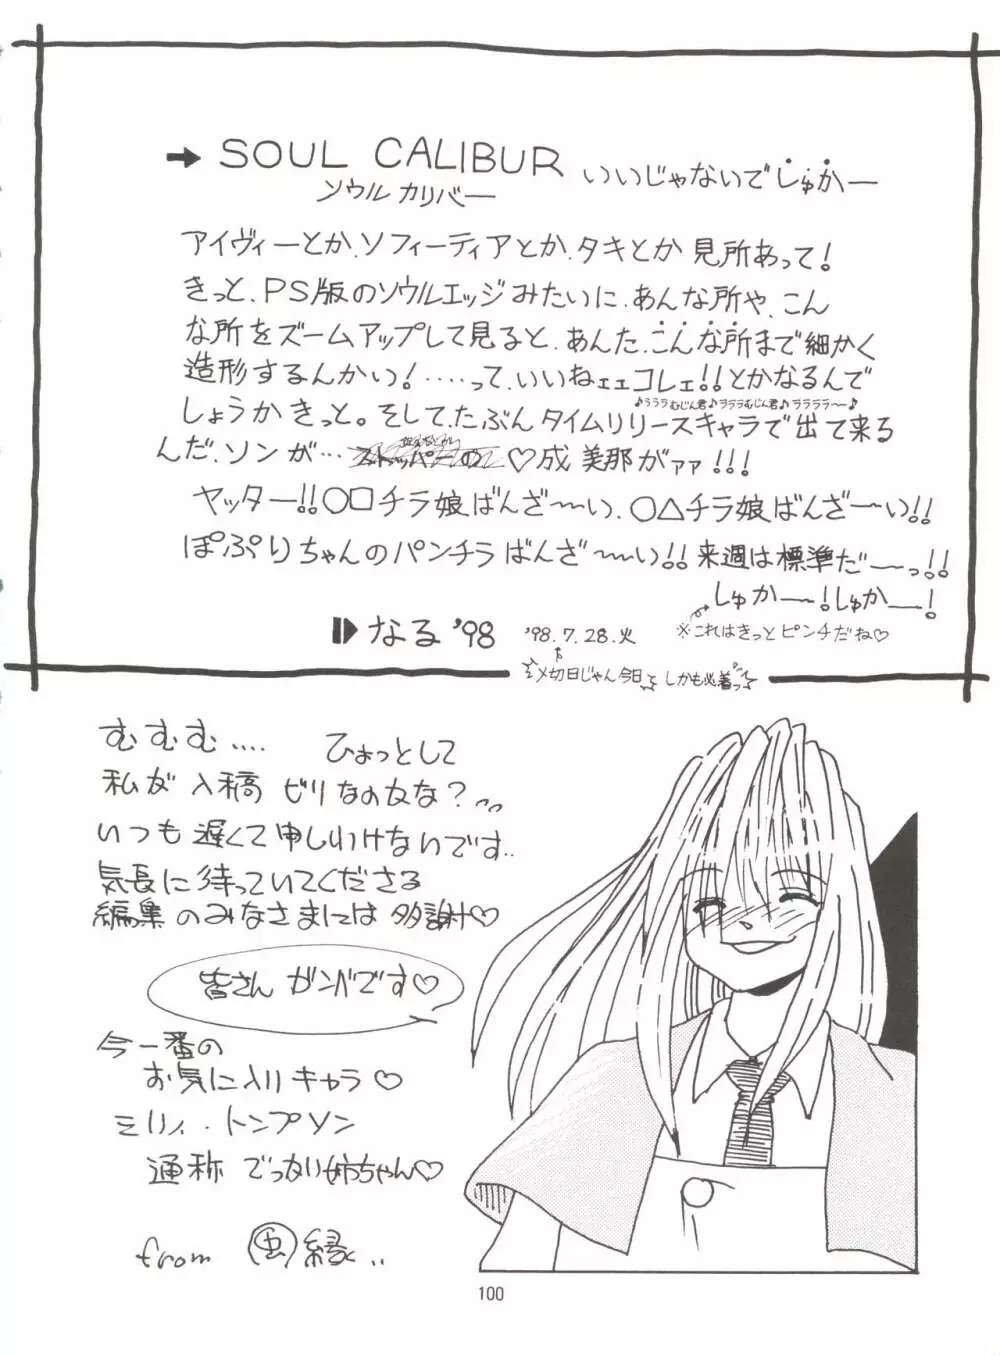 ➔ SOUL CALIBUR いいじゃないでしゅかー
ソウルカリバー
アイヴィーとか、ソフィーティアとか、タキとか見所あって!
きっと、PS版のソウルエッジみたいに、あんな所や、こん
な所をズームアップして見ると、あんた、こんな所まで細かく
造形するんかい!‥‥って、いいねェェコレェ!!とかなるんで
♪ラララむじん君♪ラララむじん君♪ララララ〜♪
しょうかきっと。そして、たぶんタイムリリースキャラで出て来る
んだ、ソンが… ♡成美那がァァ!!!
ヤッター!!○□チラ娘ばんざ〜い、○△チラ娘ばんざ〜い!!
ぽぷりちゃんのパンチラばんざ〜い!!来週は標準だ〜っ!!
しゅか〜!しゅか〜!
※これはきっとピンチだね♡
なる'98
'98.7.28.火
〆切日じゃん今日 しかも必着っ
むむむ‥‥ ひょっとして
私が入稿ビリなのかな?
いつも遅くて申しわけないです‥
気長に待っていてくださる
編集のみなさまには多謝♡
皆さんガンバです♡
今一番の
お気に入りキャラ♡
ミリィ・トンプソン
通称でっかい姉ちゃん♡
from 縁‥
100